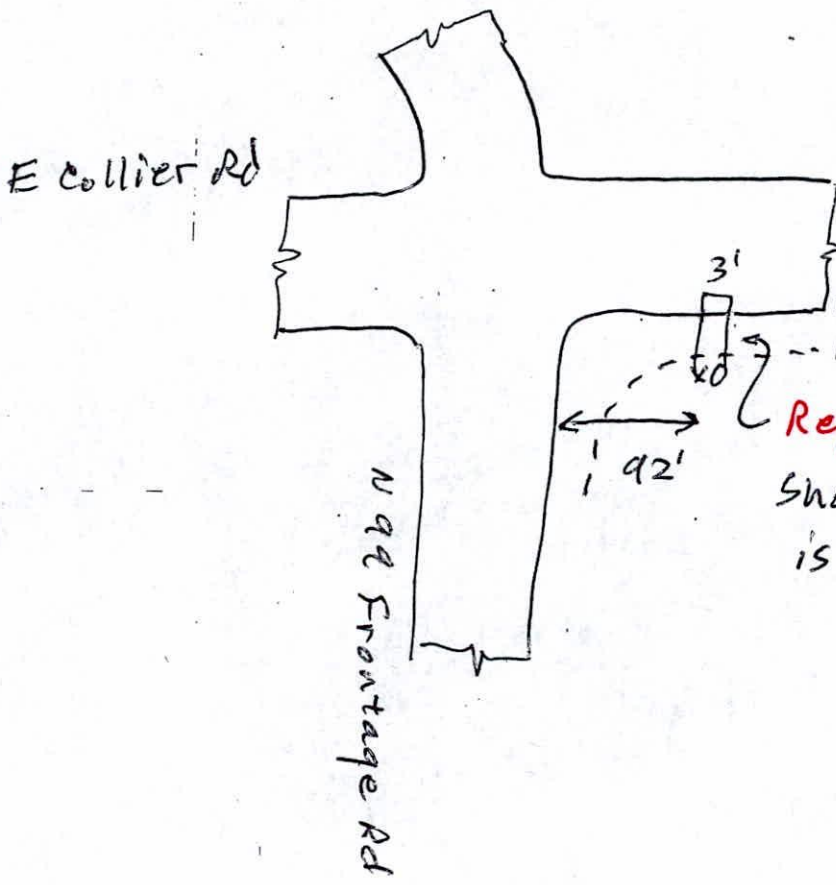 E Collier Rd
3'
92'
Re
Sh
is
N 99 Frontage Rd